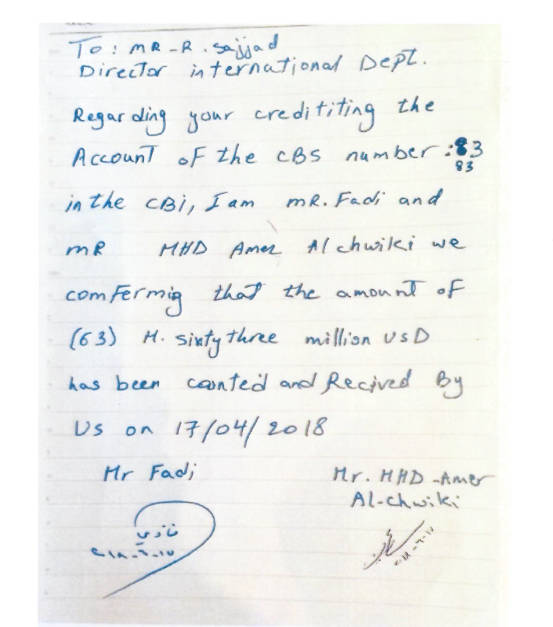 To: MR-R. Sajjad
Director international Dept.
Regarding your credititing the
Account of the CBS number :83
83
in the CBi, I am mR. Fadi and
mR MHD Amer Alchwiki we
comfermig that the amount of
(63) M. sixty three million USD
has been counted and Recived By
Us on 17/04/2018
Mr Fadi
Mr. MHD-Amer
Al-chwiki